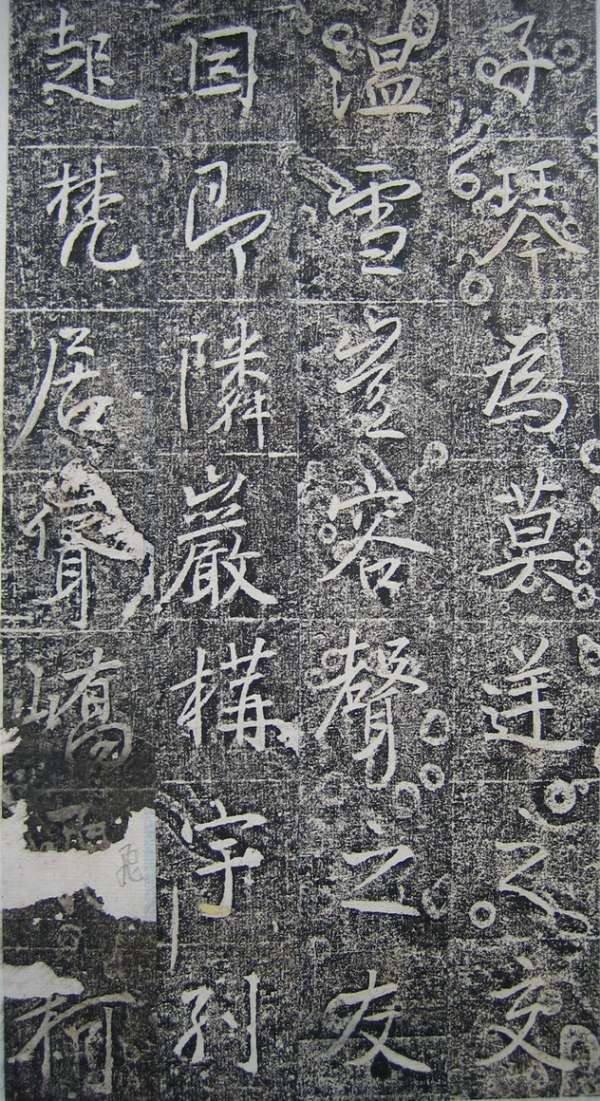 子琴為莫逆之交
温雪豈容聲之友
因即隣巖構宇列
起梵居聳嶠飛柯